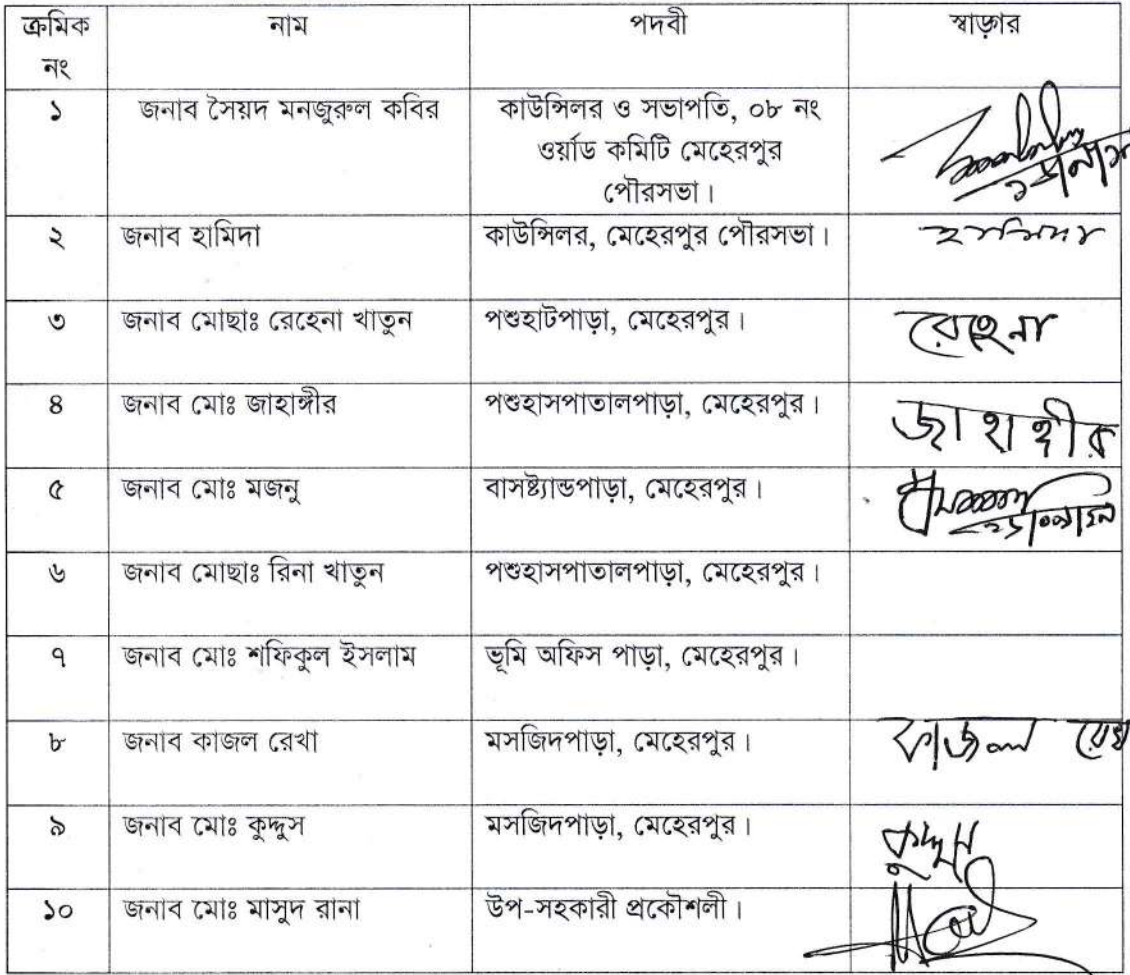 ক্রমিক নাম পদবী স্বাক্ষার
নং
১ জনাব সৈয়দ মনজুরুল কবির কাউন্সিলর ও সভাপতি, ০৮ নং
ওর্য়াড কমিটি মেহেরপুর
পৌরসভা।
২ জনাব হামিদা কাউন্সিলর, মেহেরপুর পৌরসভা। হামিদা
৩ জনাব মোছাঃ রেহেনা খাতুন পশুহাটপাড়া, মেহেরপুর। রেহেনা
৪ জনাব মোঃ জাহাঙ্গীর পশুহাসপাতালপাড়া, মেহেরপুর। জাহাঙ্গীর
৫ জনাব মোঃ মজনু বাসষ্ট্যান্ডপাড়া, মেহেরপুর।
৬ জনাব মোছাঃ রিনা খাতুন পশুহাসপাতালপাড়া, মেহেরপুর।
৭ জনাব মোঃ শফিকুল ইসলাম ভূমি অফিস পাড়া, মেহেরপুর।
৮ জনাব কাজল রেখা মসজিদপাড়া, মেহেরপুর। কাজল রেখা
৯ জনাব মোঃ কুদ্দুস মসজিদপাড়া, মেহেরপুর। কুদ্দুস
১০ জনাব মোঃ মাসুদ রানা উপ-সহকারী প্রকৌশলী।